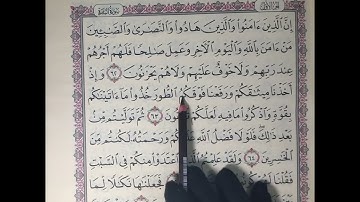 إِنَّ ٱلَّذِينَ ءَامَنُوا۟ وَٱلَّذِينَ هَادُوا۟ وَٱلنَّصَـٰرَىٰ وَٱلصَّـٰبِـِٔينَ
مَنْ ءَامَنَ بِٱللَّهِ وَٱلْيَوْمِ ٱلْـَٔاخِرِ وَعَمِلَ صَـٰلِحًا فَلَهُمْ أَجْرُهُمْ
عِندَ رَبِّهِمْ وَلَا خَوْفٌ عَلَيْهِمْ وَلَا هُمْ يَحْزَنُونَ ٦٢ وَإِذْ
أَخَذْنَا مِيثَـٰقَكُمْ وَرَفَعْنَا فَوْقَكُمُ ٱلطُّورَ خُذُوا۟ مَآ ءَاتَيْنَـٰكُم
بِقُوَّةٍ وَٱذْكُرُوا۟ مَا فِيهِ لَعَلَّكُمْ ٦٣ ثُمَّ تَوَلَّيْتُم مِّنۢ
بَعْدِ ذَٰلِكَ فَلَوْلَا فَضْلُ ٱللَّهِ وَرَحْمَتُهُۥ لَكُنتُم مِّنَ
ٱلْخَـٰسِرِينَ ٦٤ وَلَقَدْ عَلِمْتُمُ ٱعْتَدَوْا۟ مِنكُمْ فِى ٱلسَّبْتِ
فَقُلْنَا فَجَعَلْنَـٰهَا نَكَـٰلًا لِّمَا